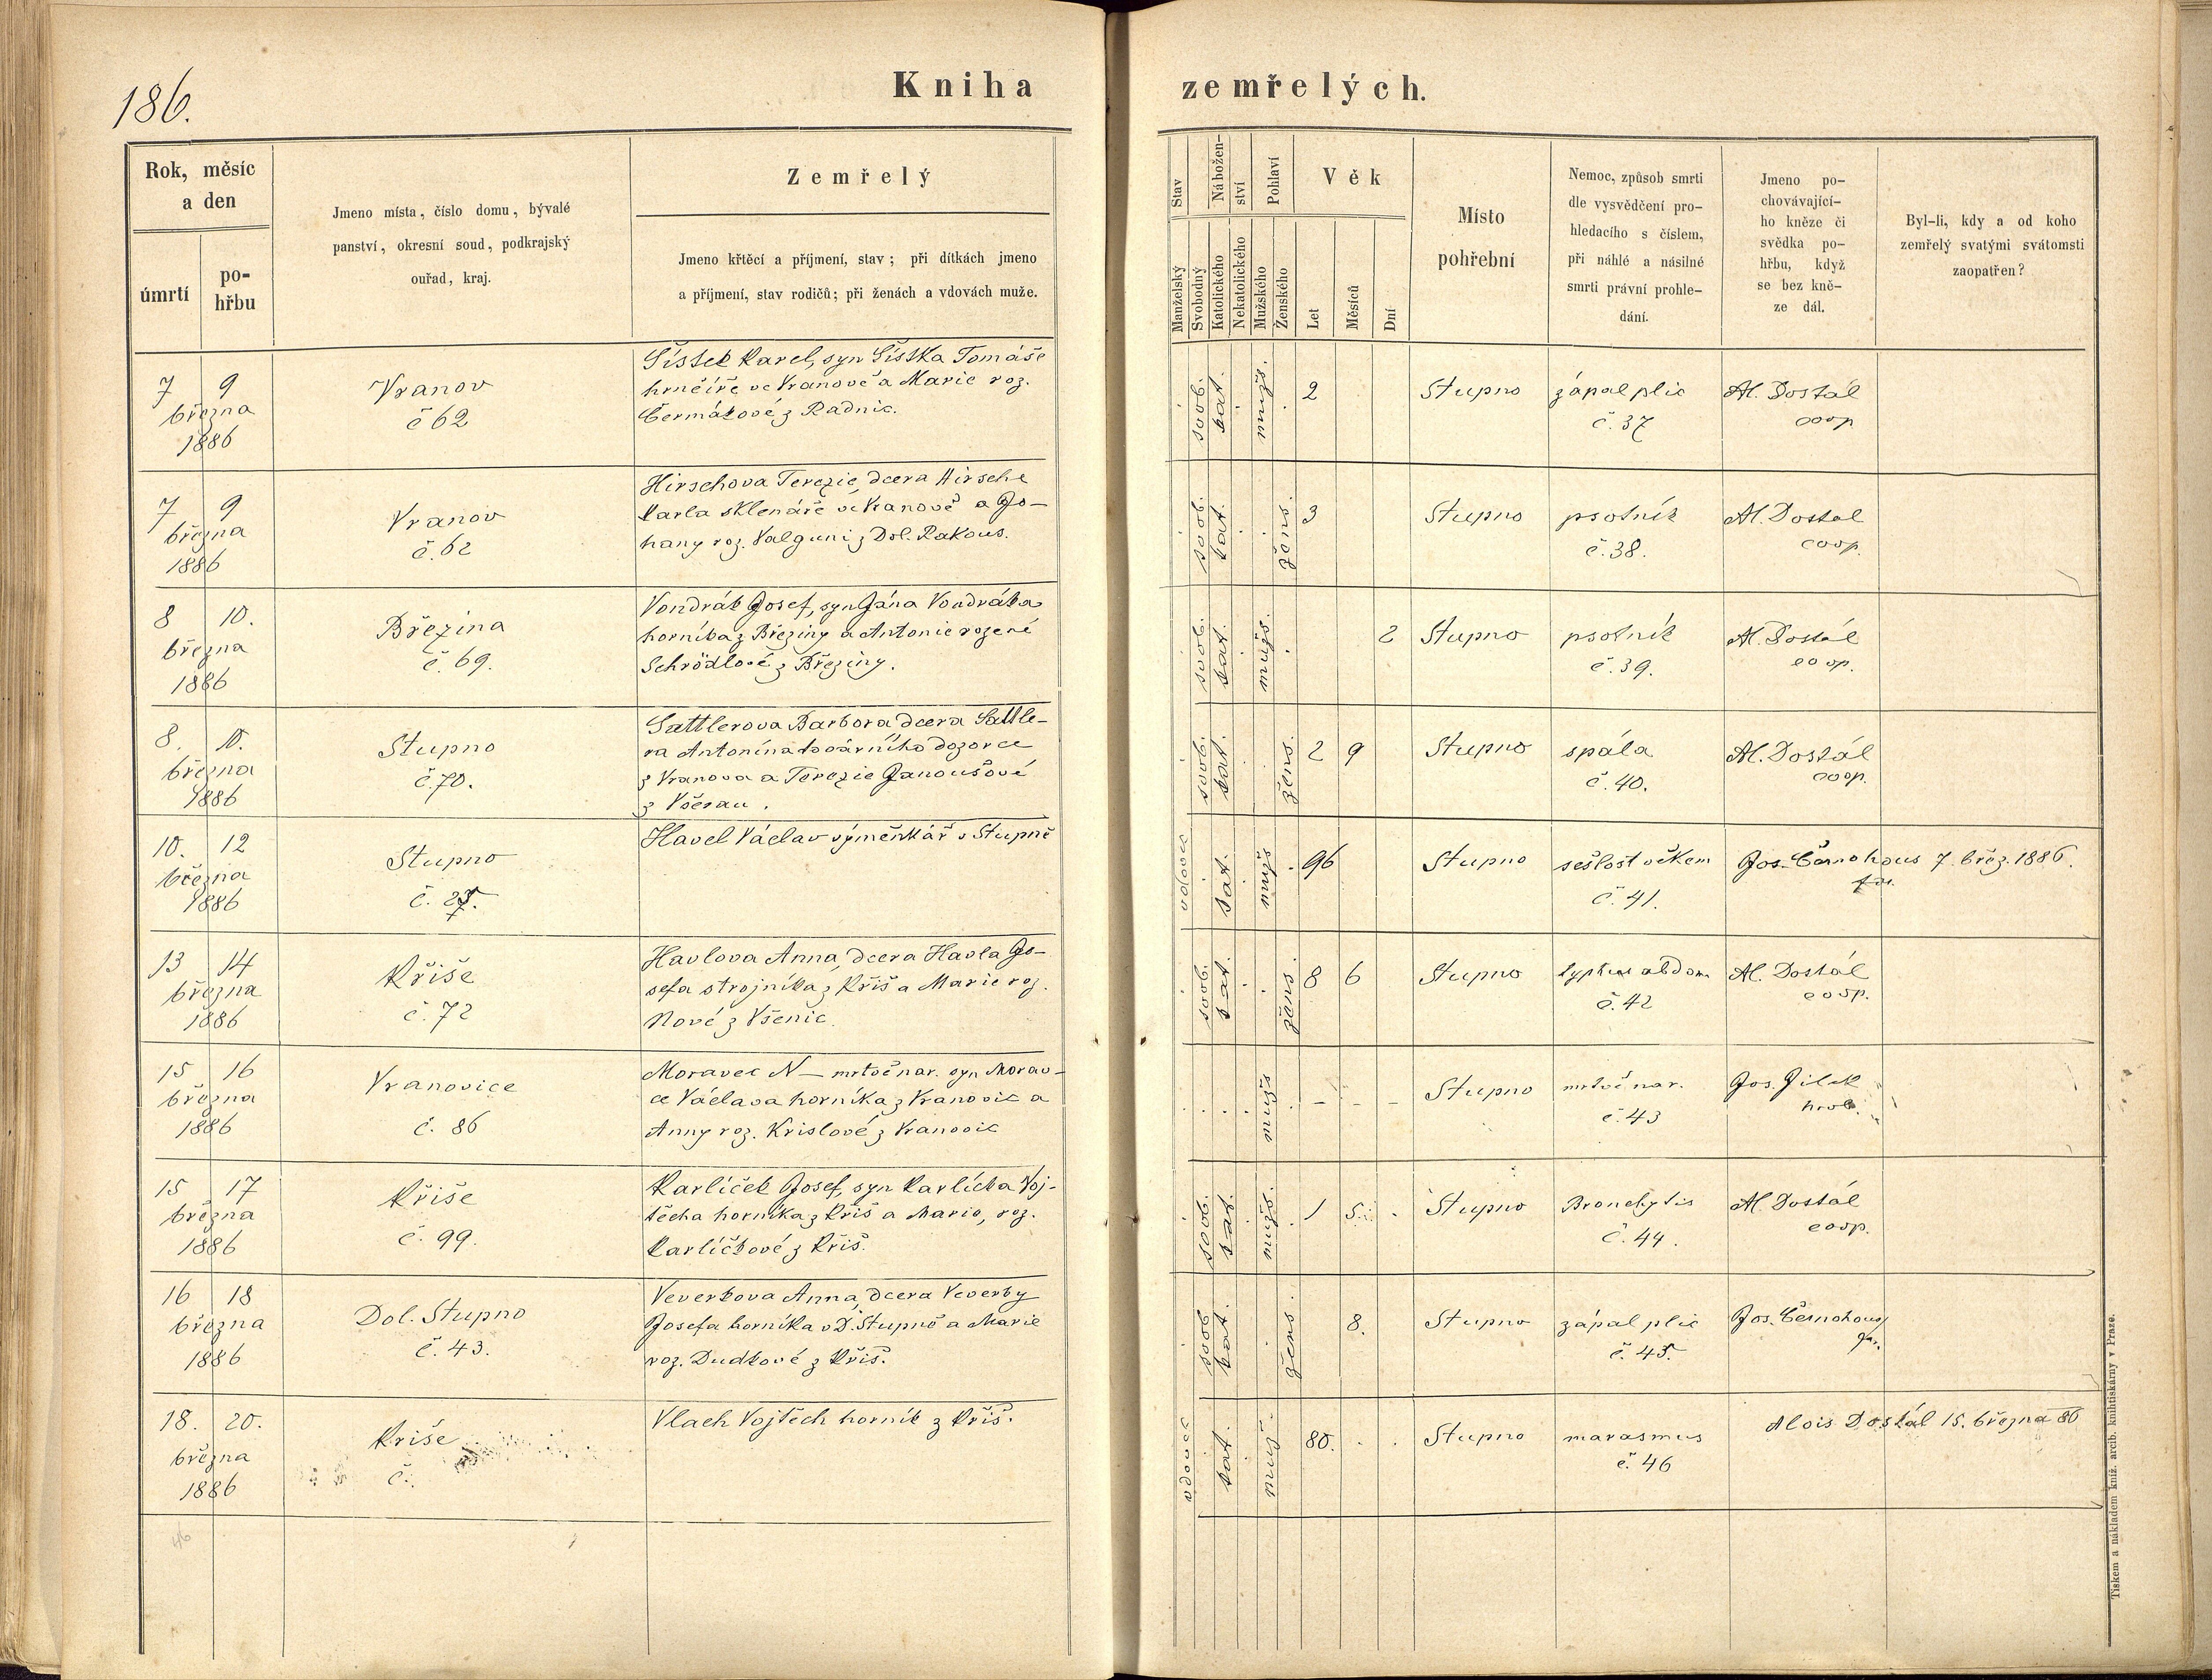 186.
Kniha zemřelých.
Rok, měsíc
a den
úmrtí
po-
hřbu
Jmeno místa, číslo domu, bývalé
panství, okresní soud, podkrajský
ouřad, kraj.
Zemřelý
Jmeno křtěcí a příjmení, stav; při dítkách jmeno
a příjmení, stav rodičů; při ženách a vdovách muže.
Stav
Manželský
Svobodný
Nábožen-
ství
Katolického
Nekatolického
Pohlaví
Mužského
Ženského
Věk
Let
Měsíců
Dní
Místo
pohřební
Nemoc, způsob smrti
dle vysvědčení pro-
hledacího s číslem,
při náhlé a násilné
smrti právní prohle-
dání.
Jmeno po-
chovávající-
ho kněze či
svědka po-
hřbu, když
se bez kně-
ze dál.
Byl-li, kdy a od koho
zemřelý svatými svátomsti
zaopatřen?
7 9
března
1886
Vranov
č 62
Šístek Karel, syn Šístka Tomáše
hrnčíře ve Vranově a Marie roz.
Čermákové z Radnic.
svob. kat. mužs. 2
Stupno
zápal plic
č. 37
Al. Dostál
coop
7 9
března
1886
Vranov
č. 62
Hirschova Terezie, dcera Hirsche
Karla sklenáře ve Vranově a Jo-
hany roz. Valguni z Dol. Rakous.
svob. kat. žens. 3
Stupno
psotník
č. 38.
Al. Dostal
coop.
8 10.
března
1886
Březina
č. 69.
Vondrák Josef, syn Jána Vondráka
horníka z Březiny a Antonie rozené
Schrödlové z Březiny.
svob. kat. mužs. 2
Stupno
psotník
č. 39.
Al. Dostál
coop.
8. 10.
března
1886
Stupno
č. 70.
Sattlerova Barbora dcera Sattle-
ra Antonína továrního dozorce
z Vranova a Terezie Janoušové
z Všerau.
svob. kat. žens. 2 9
Stupno
spála
č. 40.
Al. Dostál
coop.
10. 12
března
1886
Stupno
č.
Havel Václav výměnkář v Stupně
vdovec kat. mužs 96
Stupno
sešlost věkem
č. 41.
Jos. Černohous 7. břez. 1886.
far.
13 14
března
1886
Kříše
č. 72
Havlova Anna, dcera Havla Jo-
sefa strojníka z Kříš a Marie roz.
Nové z Všenic.
svob. kat. žens. 8 6
Stupno
typhus abdom
č. 42
Al. Dostál
coop.
15 16
března
1886
Vranovice
č. 86
Moravec N — mrtvě nar. syn Morav-
ce Václava horníka z Vranovic a
Anny roz. Krislové z Vranovic
mužs – – –
Stupno
mrtvě nar.
č. 43
Jos. Jílek
hrob.
15 17
března
1886
Kříše
č. 99.
Karlíček Josef, syn Karlíčka Voj-
těcha horníka z Kříš a Marie, roz.
Karlíčkové z Kříš.
svob. kat. mužs. 1 5
Stupno
Bronchytis
č. 44.
Al. Dostál
coop.
16 18
března
1886
Dol. Stupno
č. 43.
Veverkova Anna, dcera Veverky
Josefa horníka v D. Stupně a Marie
roz. Dudkové z Kříš.
svob kat. žens. 8.
Stupno
zápal plic
č. 45.
Jos. Černohous
far.
18. 20.
března
1886
Kříše
č.
Vlach Vojtěch horník z Kříš.
vdovec kat. muž. 80.
Stupno
marasmus
č. 46
Alois Dostál 15. března 86
46
Tiskem a nákladem kníž. arcib. knihtiskárny v Praze.